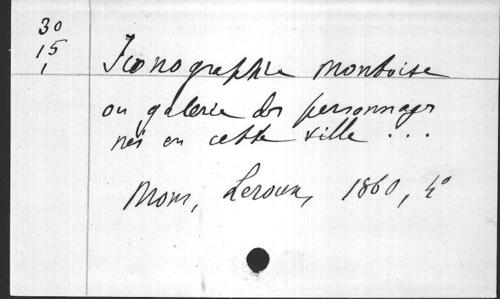 30
15
1
Iconographie montoise
ou galerie des personnages
nés en cette ville ...
Mons, Leroux, 1860, 4°